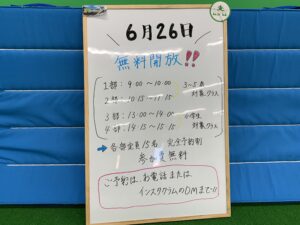 6月26日
無料開放!!
1部: 9:00～10:00 3～5歳
2部: 10:15～11:15 対象クラス
3部: 13:00～14:00 小学生
4部: 14:15～15:15 対象クラス
→ 各部定員15名 完全予約制
参加費無料
ご予約は、お電話または
インスタグラムのDMまで!!